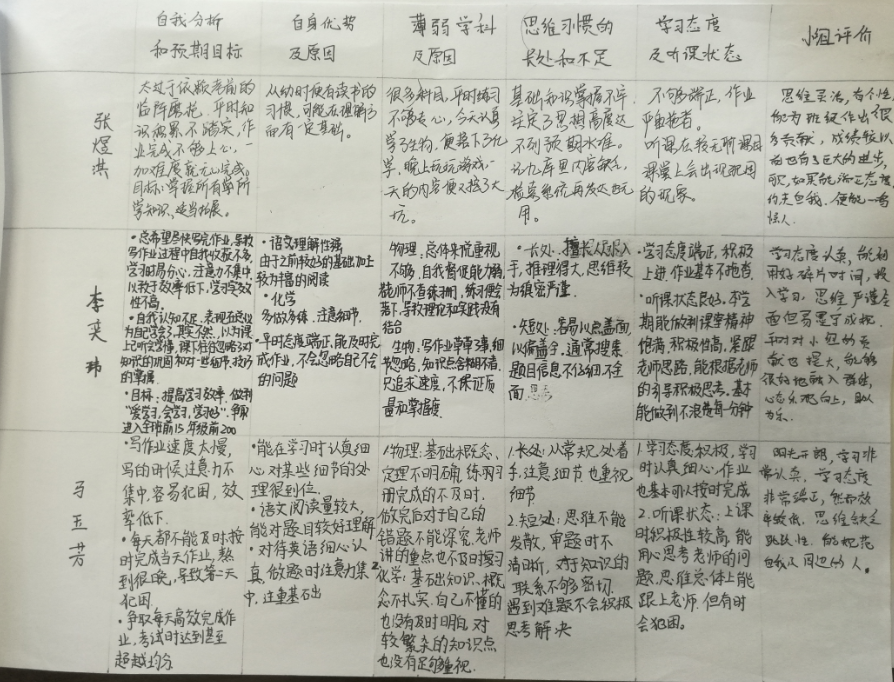 自我分析
和预期目标
自身优势
及原因
薄弱学科
及原因
思维习惯的
长处和不足
学习态度
及听课状态
小组评价
张煜
太过于依赖考前的
临阵磨枪,平时知
识积累不踏实,作
业完成不够上心,一
加难度就无从完成。
目标:掌握所有学
学知识,适当拓展。
从幼时便有读书的
习惯,可能在理解方
面有一定基础。
很多科目,平时练习
不够专心,今天认真
学了生物,便落下了化
学,晚上玩玩游戏,一
天的内容便又落了大
坑。
基础知识掌握不牢
注定了思想高度达
不到预期水准。
记九库里内容缺乏,
检索系统再发达也无
用。
不够端正,作业
严重拖着。
听课在较无聊课目
课堂上会出现犯困
的现象。
思维灵活,有个性,
能为班级作出很
多贡献,成绩较以
前也有巨大的进步,
约束自我,便能一鸣
惊人。
李奕
•总希望尽快写完作业,导致
写作业过程中自我收获不多,
学习时易分心,注意力不集中,
以致于效率低下,学习实效
性不高。
•自我认知不足,表现在总以
为自己学会了,其实不然,以为课
上已听完学懂,课下往往忽略了对
知识的巩固和对一些细节、技巧
的掌握。
•目标:提高学习效率,做到
“爱学习,会学习,学地巧”,争取
进入全市前15,年级前200
•语文理解性强
由于之前较好的基础加上
较为丰富的阅读
•化学
多做多练,注意细节.
•平时态度端正,能及时完
成作业,不会忽略自己不会
的问题
物理:总体来说重视
不够,自我督促能力弱,
老师不查练册,练习便会
落下,导致理论和实践没有
结合
生物:写作业草草了事,细
节忽略,知识点含糊不清,
只追求速度,不保证质
量和掌握度.
•长处:擅长从题入
手,推理得大,思维较
为缜密严谨.
•短处:容易以点盖面,
以偏盖全,通常搜索
题目信息不仔细不全
面.
•学习态度端正,积极
上进,作业基本不拖沓.
•听课状态良好,本学
期能做到课堂精神
饱满,积极性高,紧跟
老师思路,能根据老师
的引导积极思考.基本
能做到不浪费每分钟
学习态度认真,能利
用好碎片时间,投
入学习,思维严谨全
面但易墨守成规,
平时对小组的贡
献也很大,能够
很好地融入群体,
心态乐观向上,助人
为乐.
马玉芳
•写作业速度太慢,
写的时候注意力不
集中,容易犯困,效
率低下.
•每天都不能及时按
时完成当天作业,熬
到很晚,导致第二天
犯困.
•争取每天高效完成作
业,考试时达到甚至
超越均分
•能在学习时认真细
心,对某些细节的处
理很到位.
•语文阅读量较大,
能对题目较好理解
•对待英语细心认
真,做题时注意力集
中,注重基础
1.物理:基础概念、
定理不明确,练习
册完成的不及时.
做完后对于自己的
错题不能深究,老师
讲的重点也不及时复习
2化学:基础知识、概
念不扎实,自己不懂的
也没有及时明白,对
较繁杂的知识点
也没有足够重视.
1.长处:从常规处着
手,注意细节,也重视
细节
2.短处:思维不能
发散,审题时不
清晰,对于知识的
联系不够密切
遇到难题不会积极
思考解决
1.学习态度积极,学
习时认真细心,作业
也基本可以按时完成
2.听课状态:上课
时积极性较高,能
用心思考老师的问
题,思维总体上能
跟上老师,但有时
会犯困。
阳光开朗,学习非
常认真,学习态度
非常端正,然而效
率较低,思维缺乏
跳跃性,能规范
自我及周边的人.